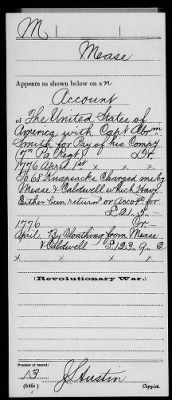 M
Mease
Appears as shown below on a *
Account
of The United States of
America with Capt Abrm
Smith for Pay of his Compy
(7th Pa Regt) Dr.
1776 April 1st x x x
To 68 Knapsacks Charged me by
Mease & Caldwell which Have
Either been return or Acctd for
£21.5.-
1776 Cr.
April By Cloathing from Mease
& Caldwell £123.9.2
x x x x x
(Revolutionary War.)
Number of record:
13
(646e)
J. Austin
Copyist.